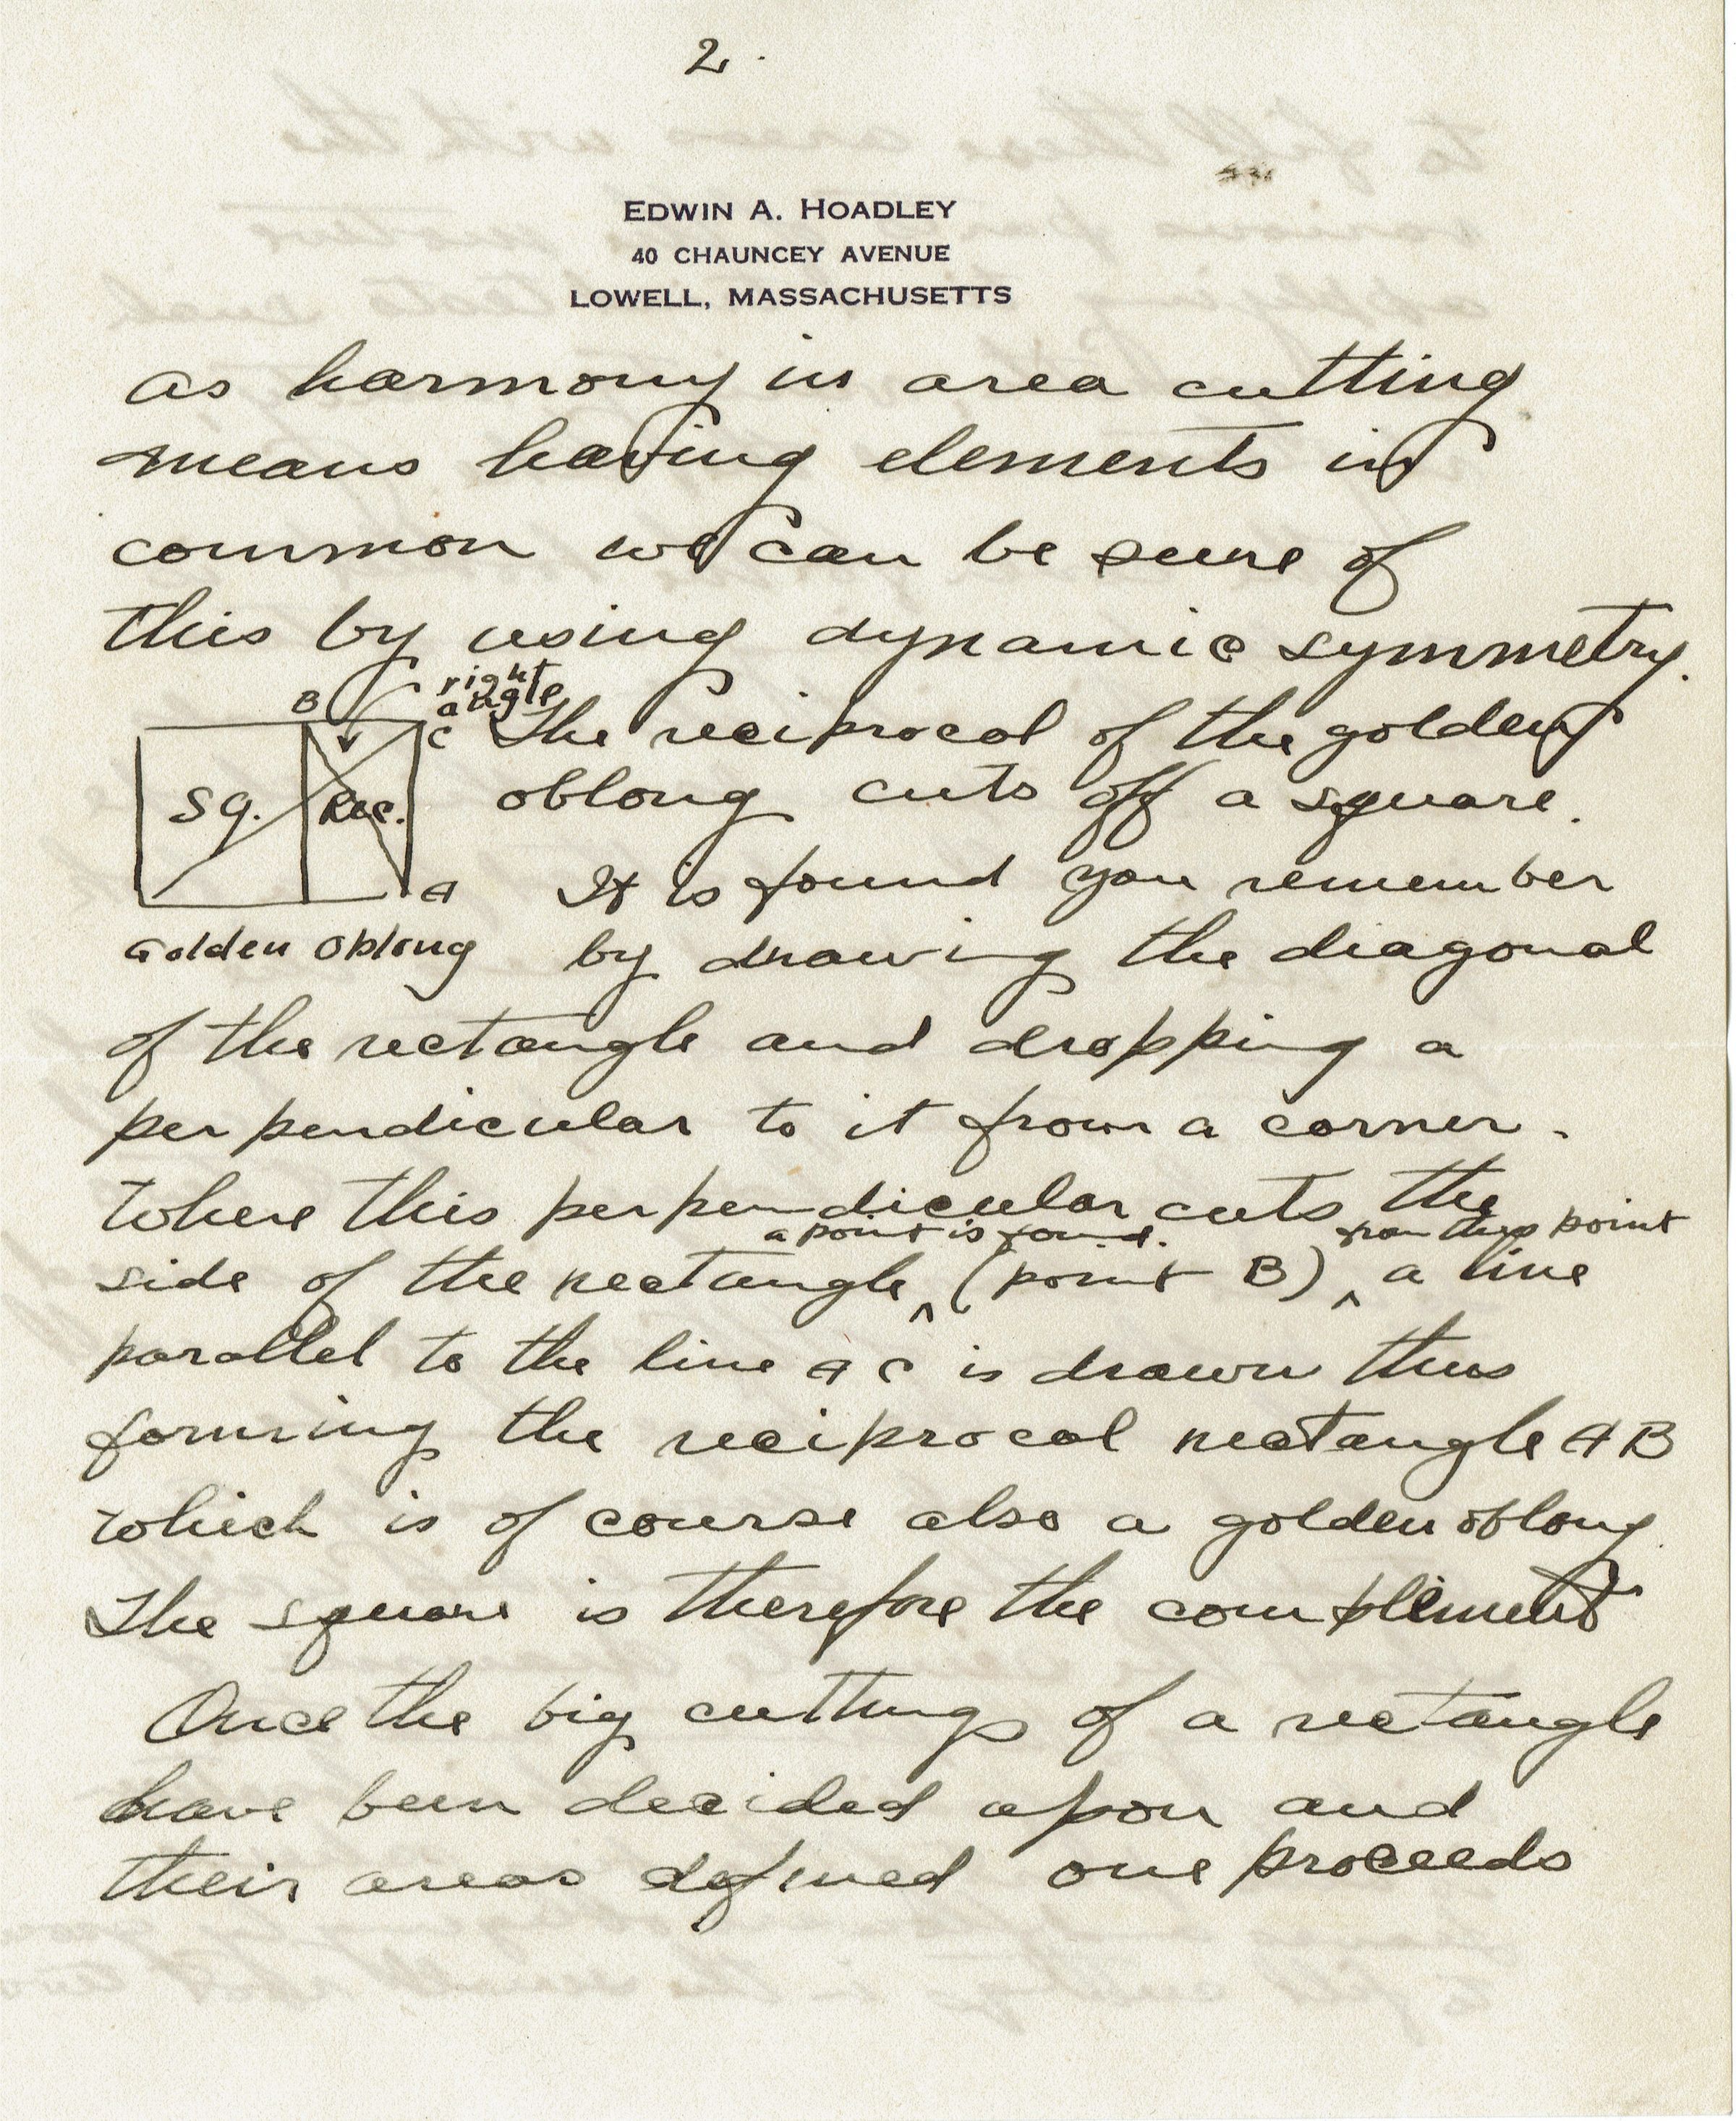 2.
EDWIN A. HOADLEY
40 CHAUNCEY AVENUE
LOWELL, MASSACHUSETTS
as harmony in area cutting
means having elements in
common we can be sure of
this by using dynamic symmetry.
right
angle
B
C
Sq.
Rec.
A
Golden Oblong
The reciprocal of the golden
oblong cuts off a square.
It is found you remember
by drawing the diagonal
of the rectangle and dropping a
perpendicular to it from a corner.
Where this perpendicular cuts the
a point is found. from this point
side of the rectangle ^ (point B) ^ a line
parallel to the line A C is drawn thus
forming the reciprocal rectangle A B
which is of course also a golden oblong.
The square is therefore the compliment
Once the big cuttings of a rectangle
have been decided upon and
their areas defined one proceeds